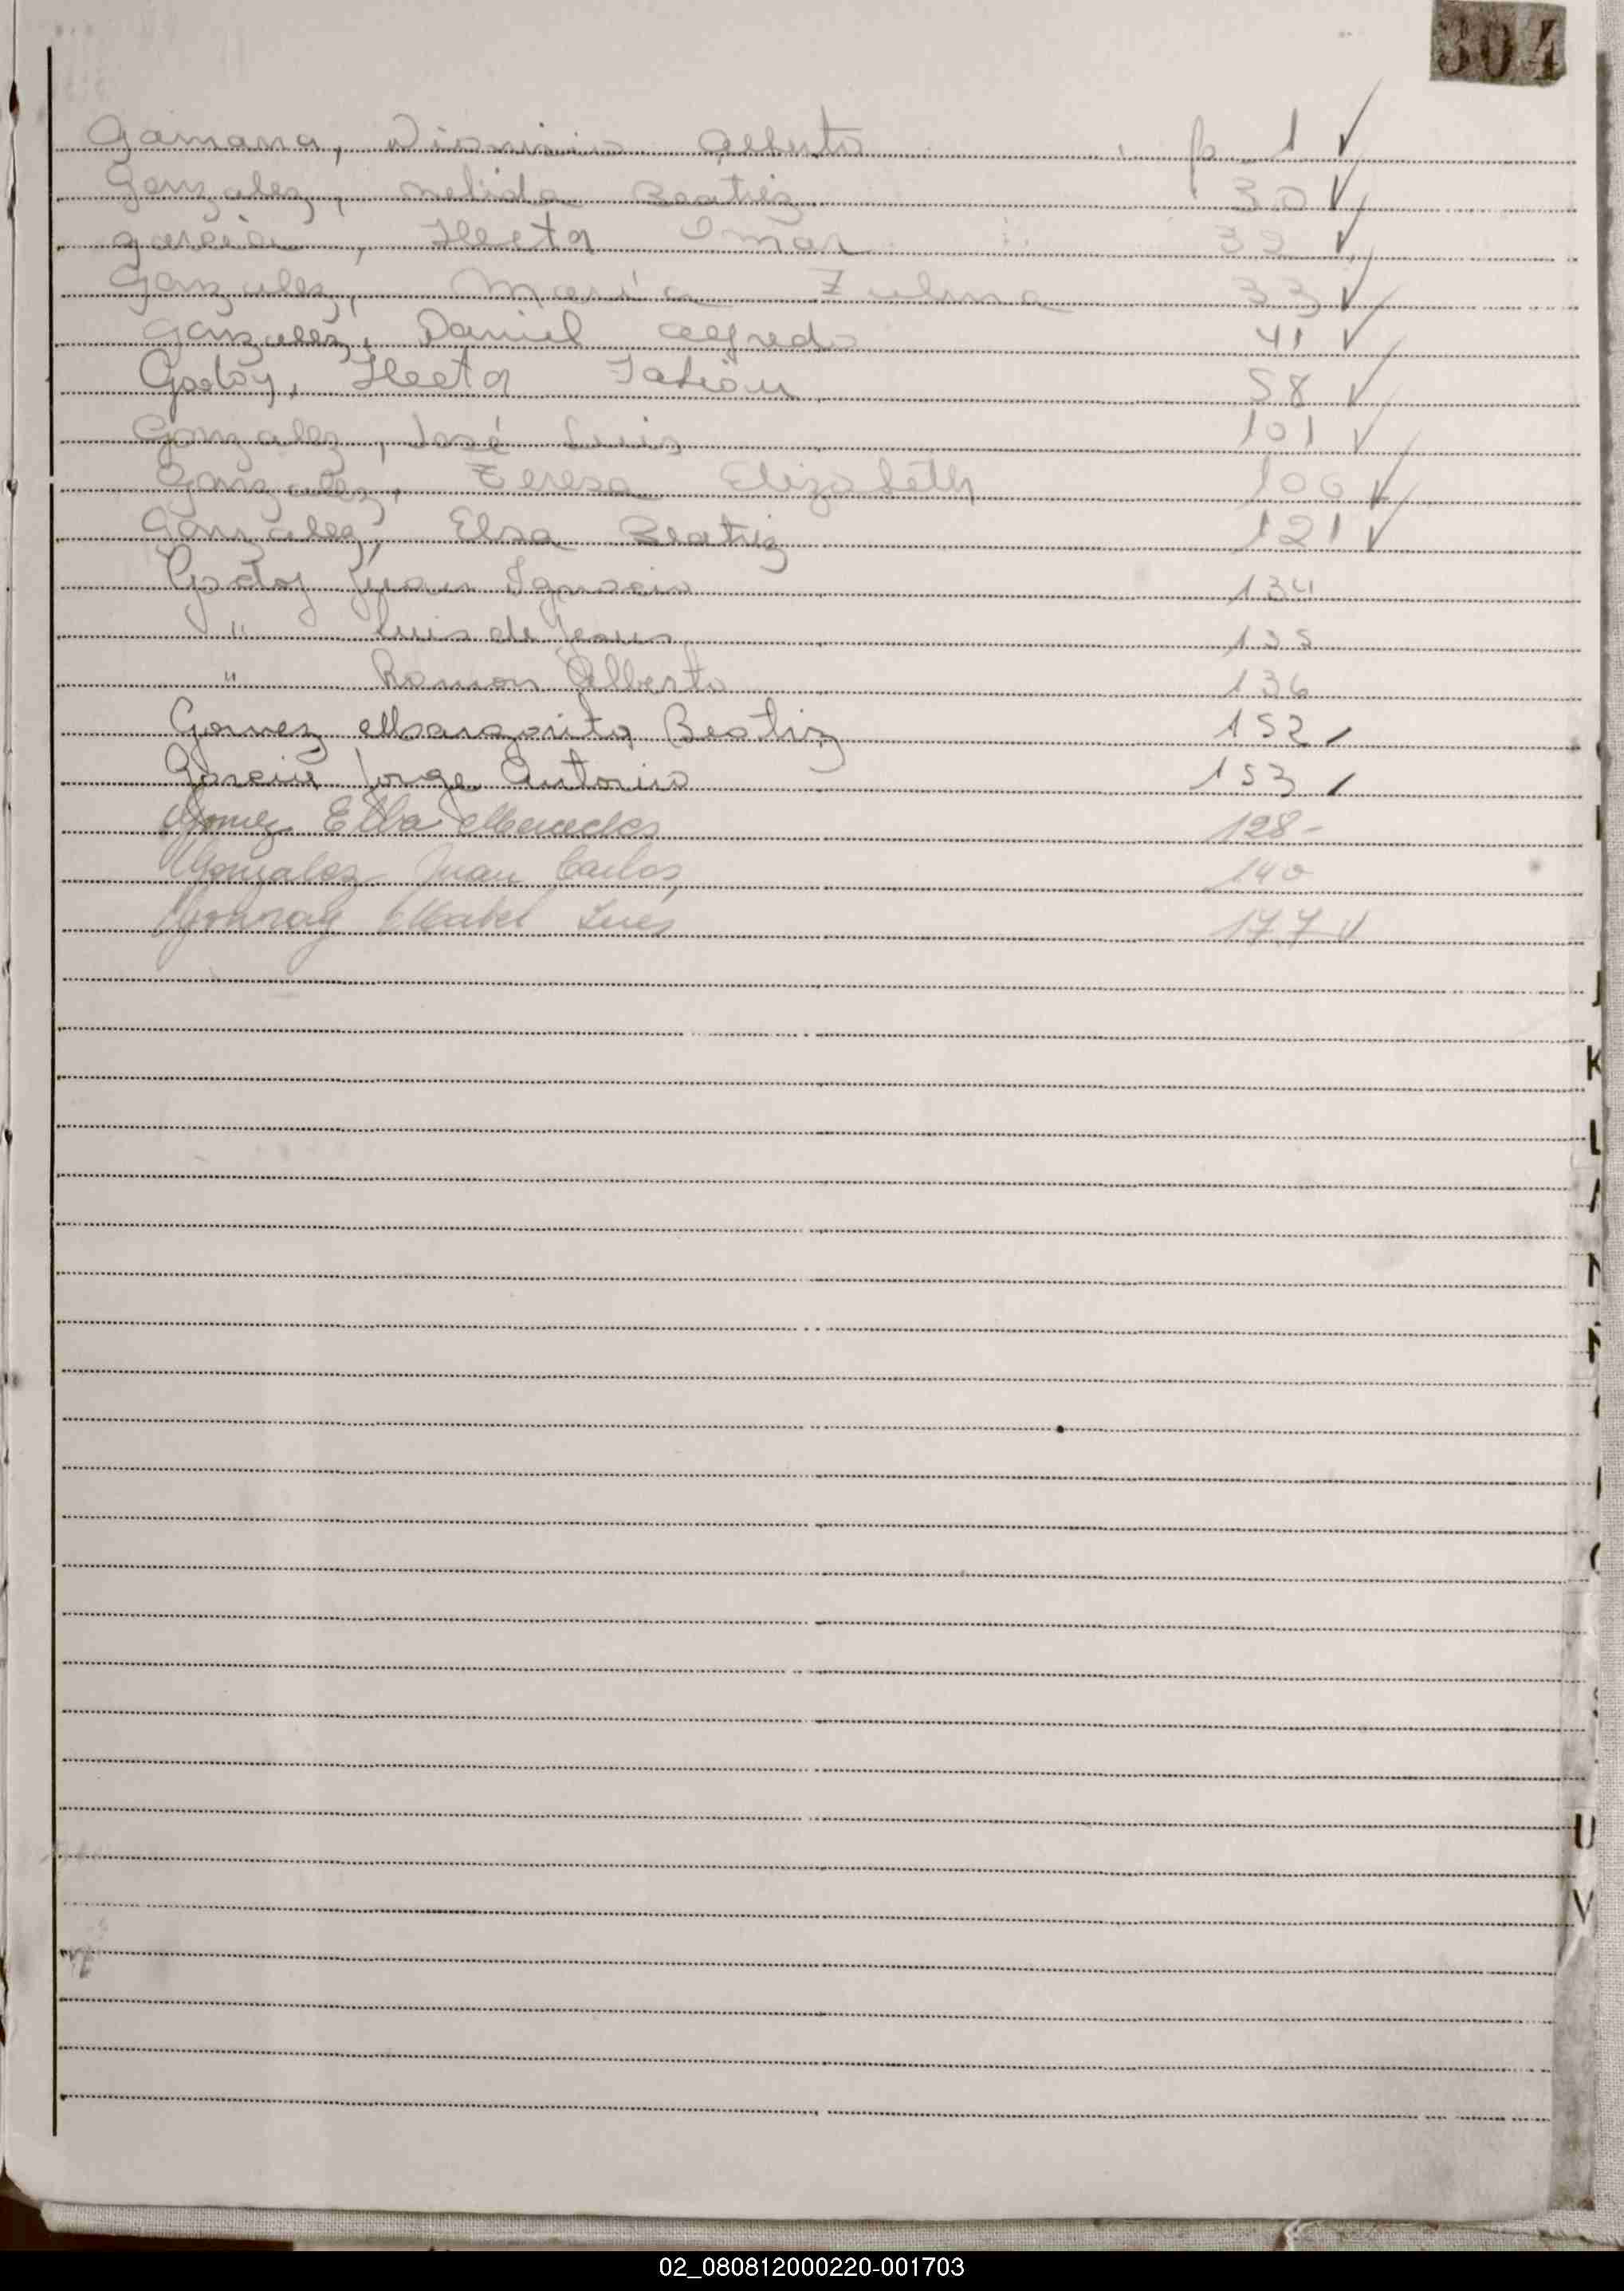 304
Gamarra, Dionisio Alberto p. 1 ✓
Gonzalez, Nelida Beatriz 30 ✓
Garcia, Hector Omar 32 ✓
Gonzalez, Maria Zulma 33 ✓
Gonzalez, Daniel Alfredo 41 ✓
Godoy, Hector Fabian 58 ✓
Gonzalez, José Luis 101 ✓
Gonzalez, Teresa Elizabeth 106 ✓
Gonzalez, Elsa Beatriz 121 ✓
Godoy Juan Ignacio 134
" Luis de Jesus 135
" Ramon Alberto 136
Gomez Margarita Beatriz 152
Garcia Jorge Antonio 153
Gomez Elba Mercedes 128-
Gonzalez Juan Carlos 140
Mabel Ines 177 ✓
K
L
N
U
V
02_080812000220-001703